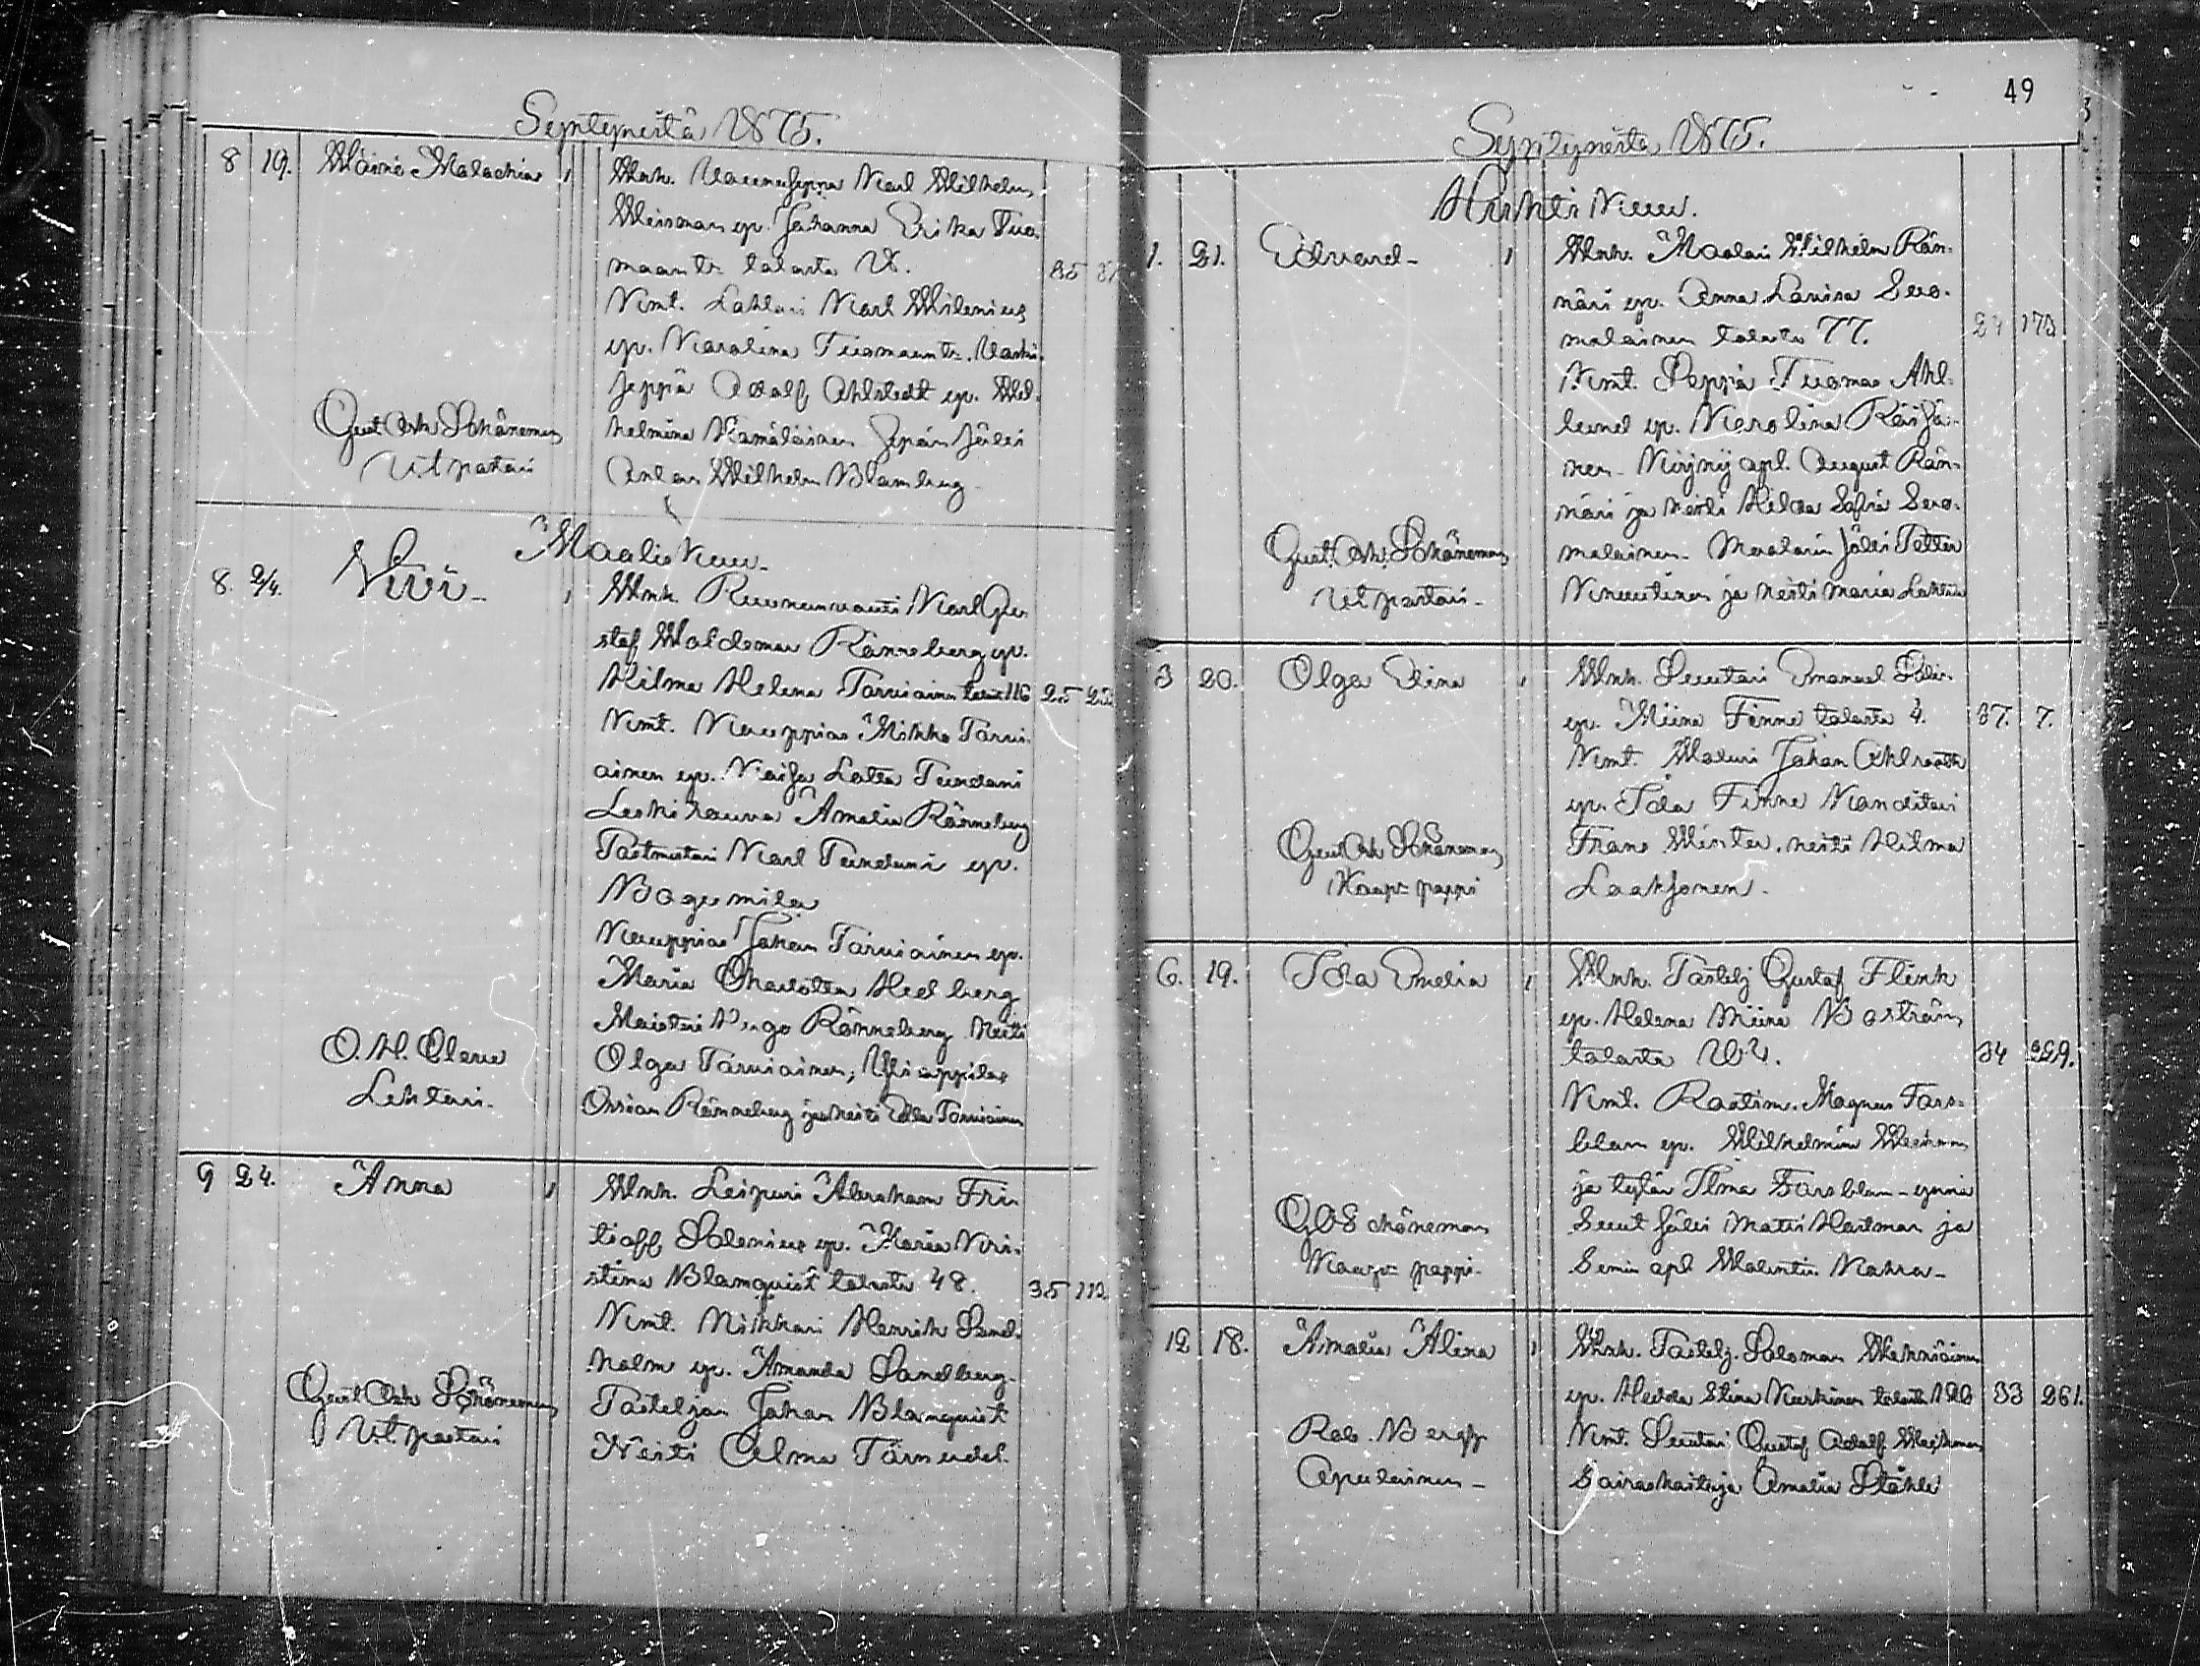 Syntyneitä 1875.
8 19. Wäinö Malachias 1 Wnh. Vaunuseppä Karl Wilhelm
Weisman ep. Johanna Erika Tuo-
maantr. talosta 18. 35
Kmt. Lahtari Karl Milenius
ep. Karolina Tuomaantr. Vaski-
seppä Adolf Ahlstedt ep. Wil-
helmina Hämäläinen Sepän sälli
Anton Wilhelm Blomberg
Gust Ad. Schöneman
V.t pastori
Maalis Kuu.
8. 2/4. Viivi- 1 Wnh. Ruununvouti Karl Gu-
staf Woldemar Rönneberg ep.
Hilma Helena Tarviainen talost. 116 25
Kmt. Kauppias Mikko Tarvi-
ainen ep. Kaisa Lotta Tundani
Leski rouva Amalia Rönneberg
Postmestari Karl Tundani ep.
Bogumila
Kauppias Johan Tarviainen ep.
Maria Charlotta Hedberg
Maisteri Hugo Rönneberg Neiti
Olga Tarviainen, Ylioppilas
Ossian Rönneberg ja neiti Edla Tarviainen
O. H. Cleve
Lehtori.
9 24. Anna 1 Wnh. Leipuri Abraham Fri-
tioff Polenius ep. Maria Kri-
stina Blomquist talosta 48. 35 112.
Kmt. Nikkari Henrik Sand-
holm ep. Amanda Sandberg-
Tasteljan Johan Blomquist
Neiti Alma Törnudd.
Gust Ad. Schöneman
V.t. pastori
49
Syntyneitä 1875.
Huhti Kuu.
1. 21. Edvard- 1 Wnh. Maalari Wilhelm Rön-
näri ep. Anna Lovisa Suo-
malainen talosta 77. 24 173
Kmt. Seppä Tuomas Ahl-
lund ep. Karolina Räisä-
nen- Kirjurij apl. August Rön-
näri ja Neiti Hilda Sofia Suo-
malainen- Maalarin sälli Petter
Knuutinen ja neiti Maria
Gust. Ad. Schöneman
V.t pastori-
3 20. Olga Elina 1 Wnh. Suutari Emanuel
ep. Miina Finne talosta 4. 37. 7.
Kmt. Maluri Johan Ahlrooth
ep. Ida Finne Kanditori
Frans Winter. neiti Hilma
Laaksonen.
Gust Ad Schöneman
Kaup: pappi
6. 19. Ida Emelia 1 Wnh. Tastelj Gustaf Flink
ep. Helena Miina Boström
talosta 34 229.
Kmt. Rastim. Magnus Fors-
blom ep. Wilhelmina
ja tytär Ilma Forsblom -
Suut sälli Matti Hartman ja
Semin apl Walentin
G A Schöneman
Kaup: pappi.
12 18. Amalia Alina 1 Wnh. Tastelj. Salomon
ep. Hedda Stina 33 261.
Kmt. Suutari Gustaf Adolf
Sairashoitaja Amalia Ståhle
Rob. Bergh
Apulainen-